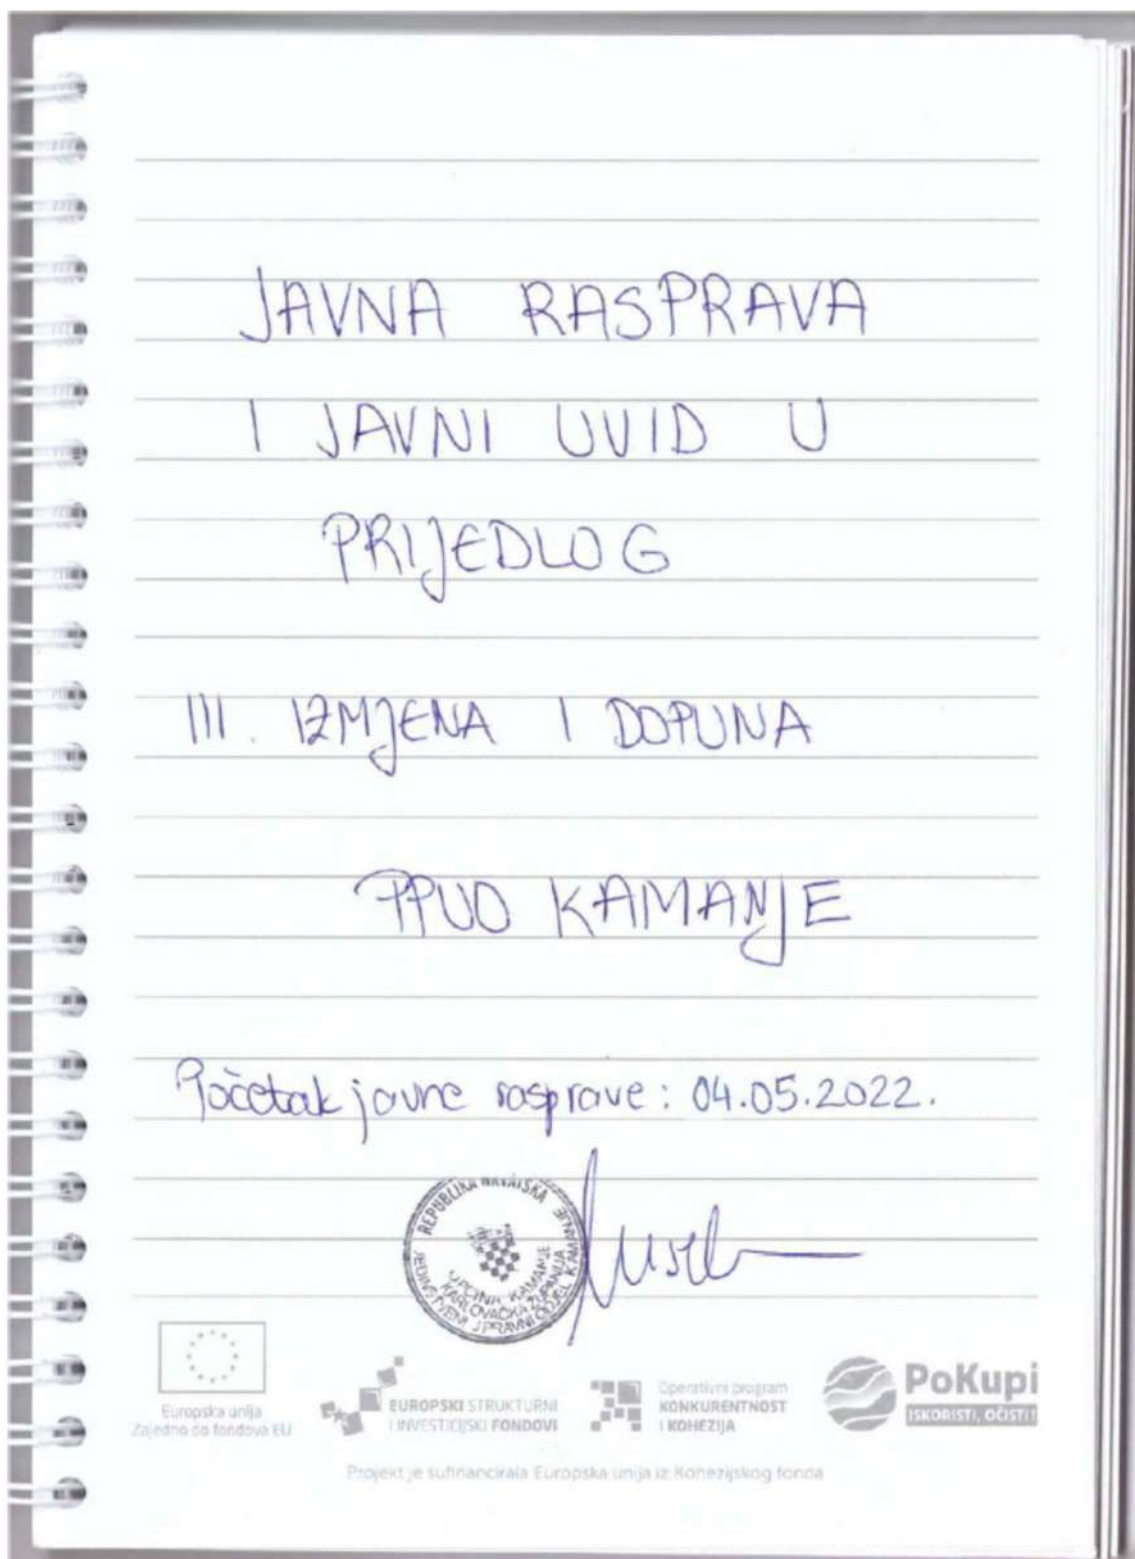 JAVNA RASPRAVA
I JAVNI UVID U
PRIJEDLOG
III. IZMJENA I DOPUNA
PPUO KAMANJE
Početak javne rasprave: 04.05.2022.
REPUBLIKA HRVATSKA
OPĆINA KAMANJE
KARLOVAČKA ŽUPANIJA
JEDINSTVENI UPRAVNI ODJEL KAMANJE
Europska unija
Zajedno do fondova EU
EUROPSKI STRUKTURNI
I INVESTICIJSKI FONDOVI
Operativni program
KONKURENTNOST
I KOHEZIJA
PoKupi
ISKORISTI, OČISTI!
Projekt je sufinancirala Europska unija iz Kohezijskog fonda